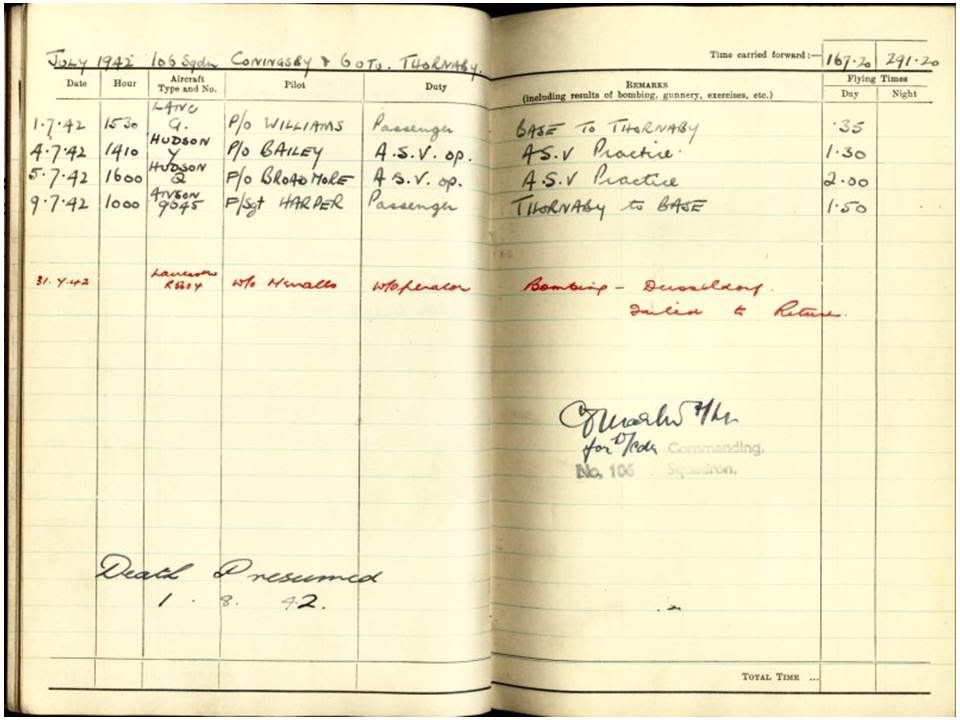 JULY 1942 106 Sqdn CONINGSBY & 6 OTU. THORNABY.
Time carried forward:— 167.20 291.20
Date Hour Aircraft Type and No. Pilot Duty REMARKS (including results of bombing, gunnery, exercises, etc.) Flying Times Day Night
1.7.42 1530 LANC G. P/O WILLIAMS Passenger BASE TO THORNABY .35
4.7.42 1410 HUDSON Y P/O BAILEY A.S.V. op. A.S.V Practice. 1.30
5.7.42 1600 HUDSON Q F/O BROADMORE A.S.V. op. A.S.V Practice 2.00
9.7.42 1000 ANSON 9045 F/Sgt HARPER Passenger THORNABY to BASE 1.50
31.7.42 Lancaster R5604 W/O W/Operator Bombing – Dusseldorf.
Failed to Return.
for W/Cdr Commanding,
No. 106 Squadron.
Death Presumed
1 . 8. 42.
TOTAL TIME ...